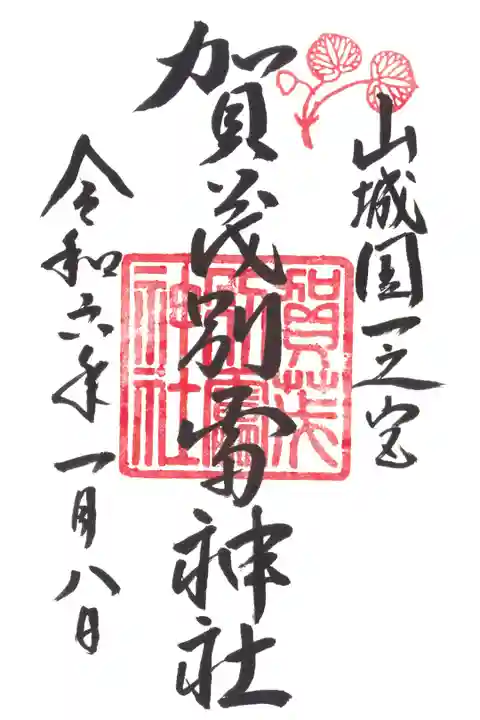 山城国一之宮
賀茂別雷神社
賀茂
別雷
神社
令和六年一月八日